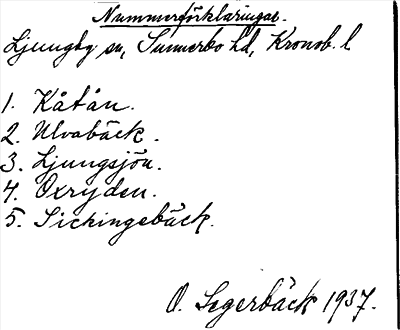 Nummerförklaringar.
Ljungby sn, Sunnerbo hd, Kronob. l
1. Kåtån.
2. Ulvabäck.
3. Ljungsjön.
4. Oxryden.
5. Sickingebäck.
O. Segerbäck 1937.